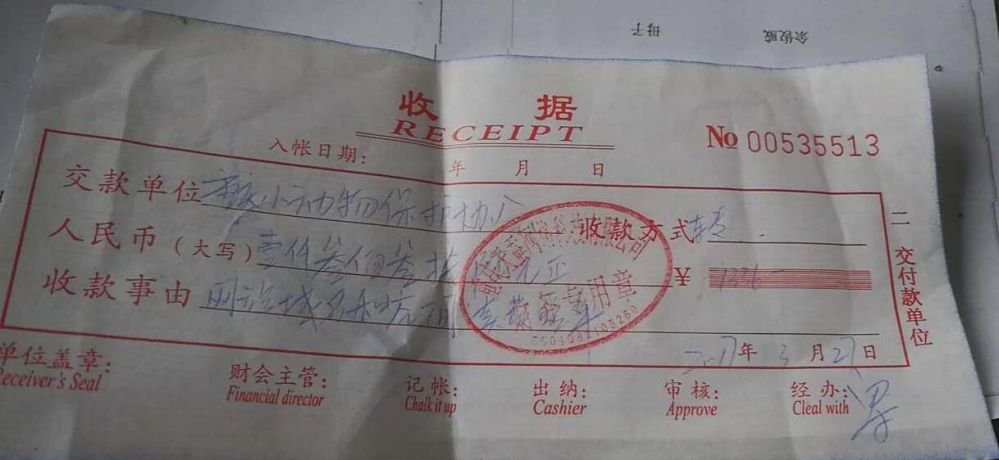 收 据
RECEIPT
No 00535513
入帐日期： 年 月 日
交款单位 小动物保护协会 收款方式 转
人民币（大写） 壹仟叁佰叁拾 元正 ¥ 1336
收款事由 网站域名和空间
专用章
2017年 3月 27日
二 交付款单位
单位盖章： 财会主管： 记 帐： 出 纳： 审 核： 经 办：
Receiver's Seal Financial director Chalk it up Cashier Approve Cleal with
母子